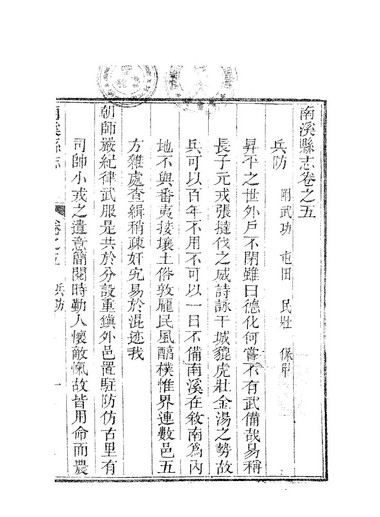 南溪縣志卷之五
兵防 附武功 屯田 民壯 保甲
昇平之世外戶不閉雖曰德化何嘗不有武備哉易稱
長子元戎張撻伐之威詩詠干城藉虎壯金湯之勢故
兵可以百年不用不可以一日不備南溪在敘南爲內
地不與番夷接壤土俗敦龐民風醇樸惟界連數邑五
方雜處查緝稍疎奸宄易於混迹我
朝師嚴紀律武服是共於分設重鎮外邑置駐防仿古里有
司師小戎之遺意簡閱時勤人懷敵愾故皆用命而農
南溪縣志 卷之五 兵防 一